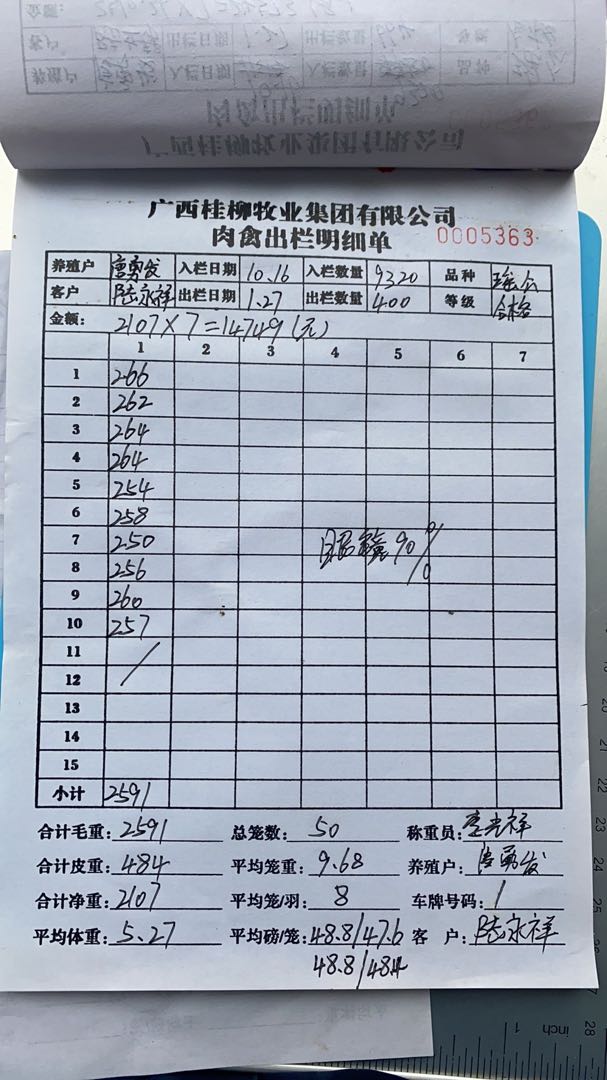 广西桂柳牧业集团有限公司
肉禽出栏明细单 0005363
养殖户 唐勇发 入栏日期 10.16 入栏数量 9320 品种 瑶公
客户 陆永祥 出栏日期 1.27 出栏数量 400 等级 合格
金额: 2107×7=14749(元)
1 2 3 4 5 6 7
1 266
2 262
3 264
4 264
5 254
6 258
7 250 眼 90%
8 256
9 260
10 257
11 /
12
13
14
15
小计 2591
合计毛重: 2591 总笼数: 50 称重员: 光祥
合计皮重: 484 平均笼重: 9.68 养殖户: 唐勇发
合计净重: 2107 平均笼/羽: 8 车牌号码: /
平均体重: 5.27 平均磅/笼: 48.8/47.6 客 户: 陆永祥
48.8/48.4